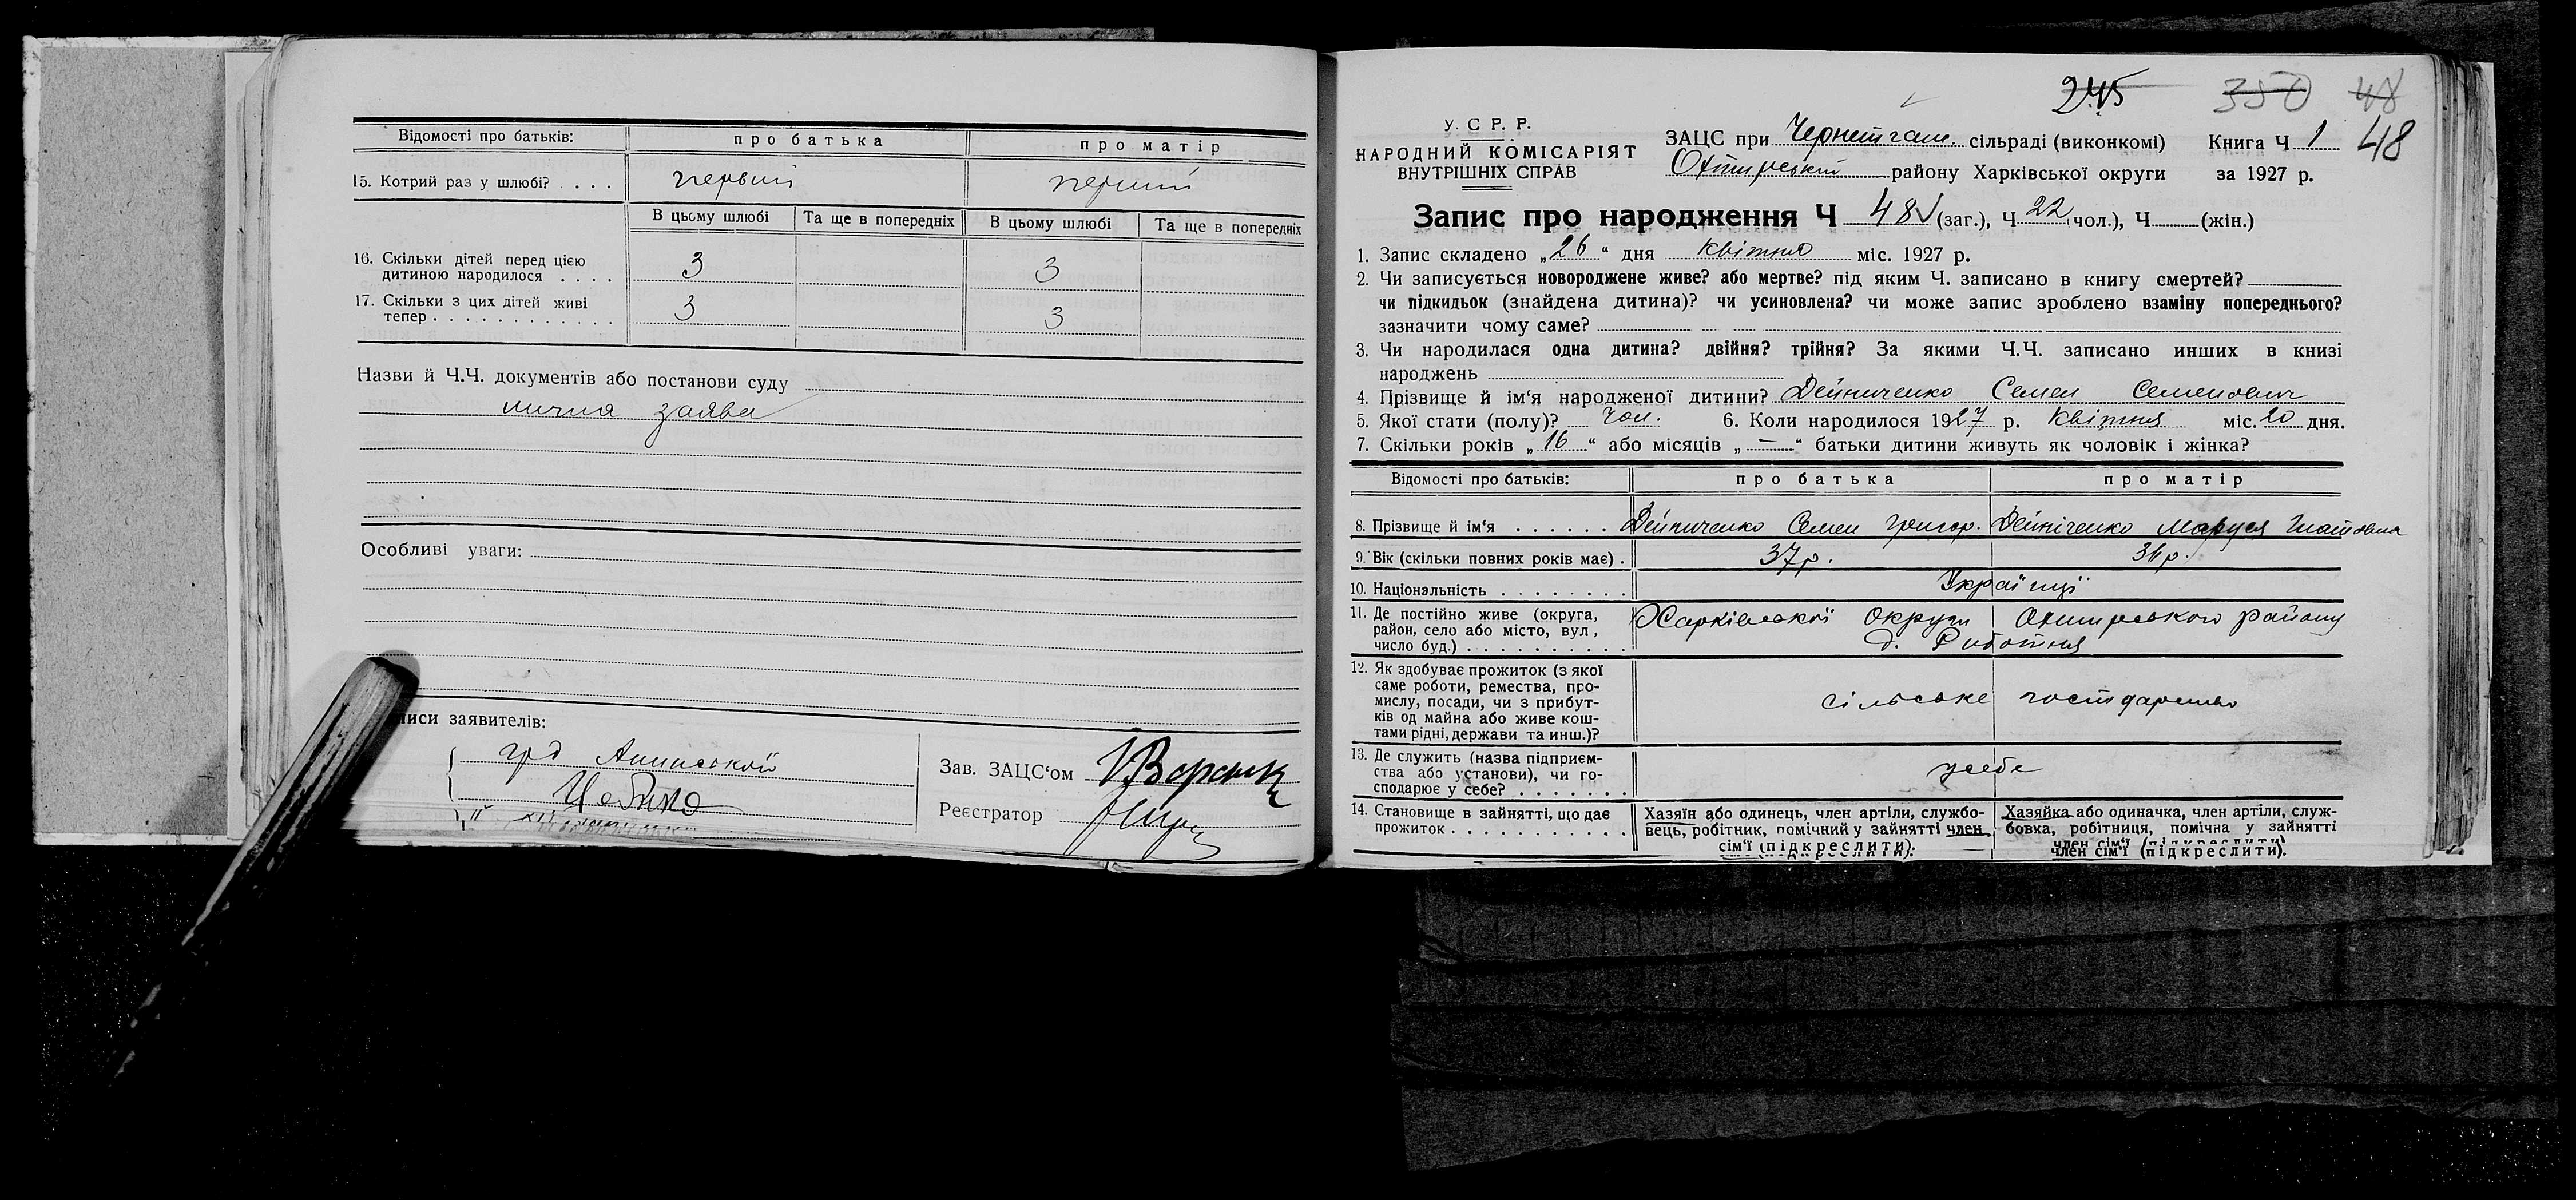 Відомості про батьків: про батька про матір
15. Котрий раз у шлюбі? . . . . первий перший
В цьому шлюбі Та ще в попередніх В цьому шлюбі Та ще в попередніх
16. Скільки дітей перед цією
дитиною народилося . . . . 3 3
17. Скільки з цих дітей живі
тепер . . . . . . . . . . . . . 3 3
Назви й Ч.Ч. документів або постанови суду
лична заява
Особливі уваги:
писи заявителів:
грд
Зав. ЗАЦС‘ом
Реєстратор
245 350 48
У. С Р. Р.
НАРОДНИЙ КОМІСАРІЯТ
ВНУТРІШНІХ СПРАВ
ЗАЦС при сільраді (виконкомі) Книга Ч 1 48
Охтирський району Харківської округи за 1927 р.
Запис про народження Ч 48 (заг.), Ч 22 (чол.), Ч (жін.)
1. Запис складено „26“ дня квітня міс. 1927 р.
2. Чи записується новороджене живе? або мертве? під яким Ч. записано в книгу смертей?
чи підкидьок (знайдена дитина)? чи усиновлена? чи може запис зроблено взаміну попереднього?
зазначити чому саме?
3. Чи народилася одна дитина? двійня? трійня? За якими Ч.Ч. записано инших в книзі
народжень
4. Прізвище й ім‘я народженої дитини? Дейниченко Семен Семенович
5. Якої стати (полу)? Чол. 6. Коли народилося 1927 р. Квітня міс. 20 дня.
7. Скільки років „16“ або місяців „—“ батьки дитини живуть як чоловік і жінка?
Відомості про батьків: про батька про матір
8. Прізвище й ім‘я . . . . . . Дейниченко Семен Григор. Дейніченко Маруся
9. Вік (скільки повних років має) . 37 р. 36 р.
10. Національність . . . . . . . . Українці
11. Де постійно живе (округа, Харківської Округи Охтирського району
район, село або місто, вул,
число буд.) . . . . . . . . . . д.
12. Як здобуває прожиток (з якої
саме роботи, ремества, про-
мислу, посади, чи з прибут- сільське господарство
ків од майна або живе кош-
тами рідні, держави та инш.)?
13. Де служить (назва підприєм-
ства або установи), чи го- усебе
сподарює у себе? . . . . . . .
14. Становище в зайнятті, що дає Хазяїн або одинець, член артіли, службо- Хазяйка або одиначка, член артіли, служ-
прожиток . . . . . . . . . . . вець, робітник, помічний у зайнятті член бовка, робітниця, помічна у зайнятті
сім‘ї (підкреслити). член сім‘ї (підкреслити).